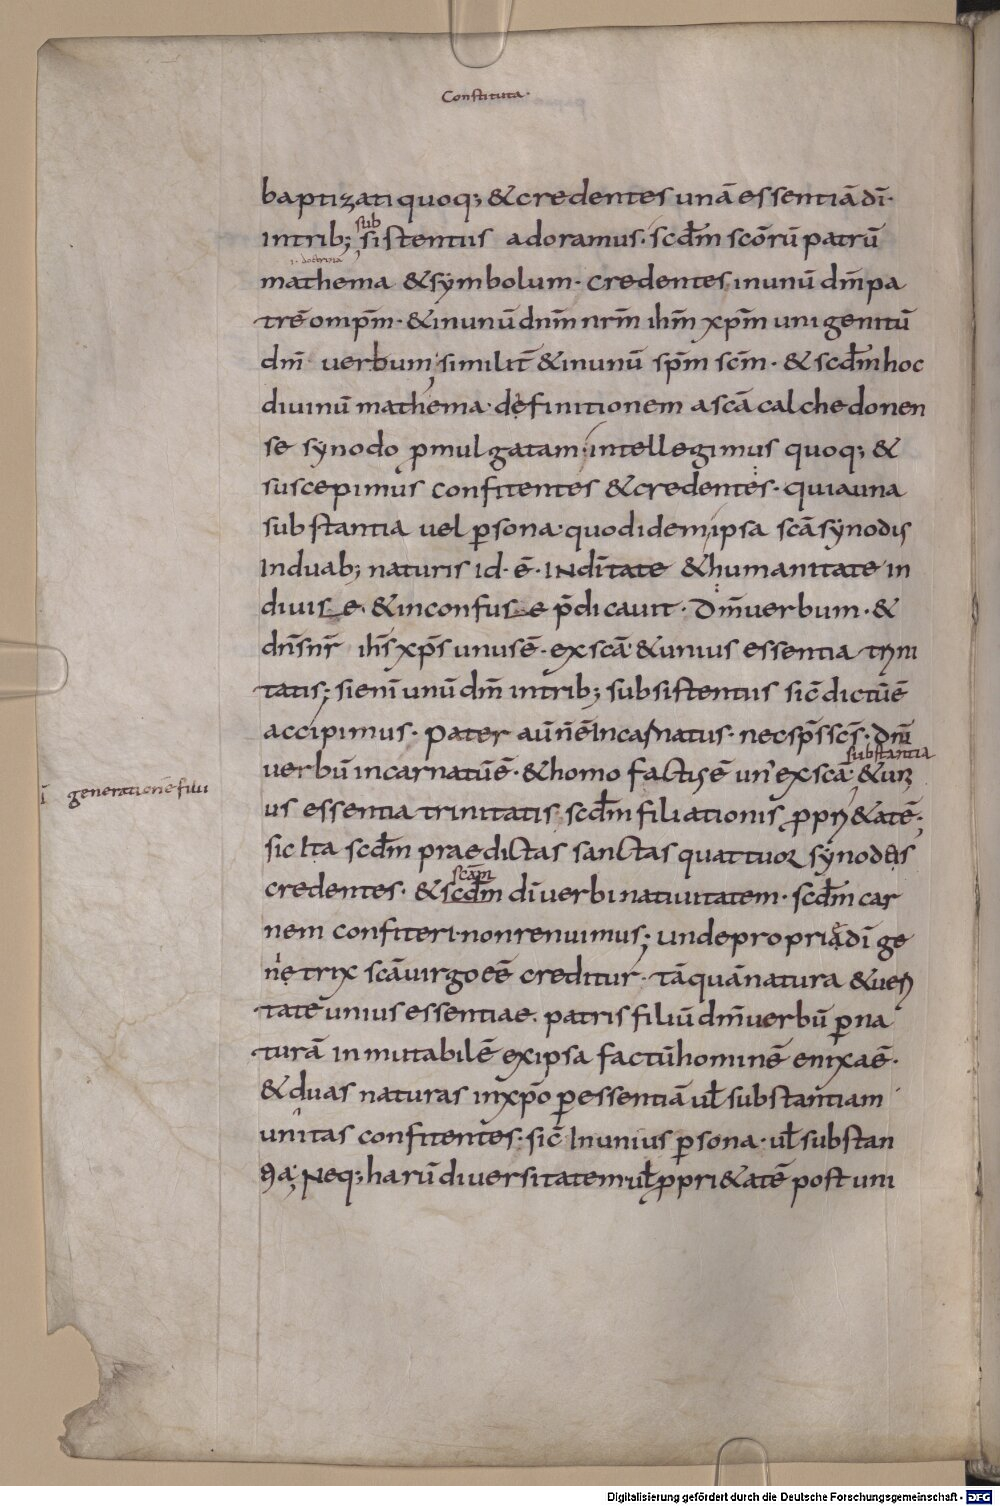 Constituta·
baptizati quoq; & credentes unā essentiā dī·
in trib; sub
sistentiis adoramus· scdm̄ scōrū patrū
i· doctrina
mathema & symbolum· credentes in unū dm̄ pa
trē omp̄m· & in unū dnm̄ nrm̄ ihm̄ xp̄m unigenitū
dm̄ uerbum; similit̄ & in unū sp̄m scm̄· & scdm̄ hoc
diuinū mathema· definitionem a scā calchedonen
se synodo p̄mulgatam· intellegimus quoq; &
suscepimus confitentes & credentes· quia una
substantia uel p̄sona· quod idem ipsa scā synodis
In duab; naturis id· ē· IN dītate & humanitate in
diuise· & inconfuse p̄dicauit· Dm̄ uerbum· &
dn̄s nr̄ ih̄s xp̄s unus ē· ex scā & unius essentia tryni
tatis; sic enī unū dm̄ in trib; subsistentiis sic̄ dictū ē
accipimus· Pater aū n̄ ē Incarnatus· nec sp̄s scs̄· Dm̄
substantia
uerbū incarnatū ē· & homo factus ē un' ex scā· & uni
us essentia trinitatis· scdm̄ filiationis p̄pri&atē;
ī generationē filii
sic Ita scdm̄ praedictas sanctas quattuor synodos
scām
credentes· & scdm̄ dī uerbi natiuitatem· scdm̄ car
nem confiteri· non renuimus; unde propriā dī ge
netrix scā uirgo eē creditur· tāquā natura & ueri
tate unius essentiae· patris filiū dm̄ uerbū p̄ na
turā inmutabilē ex ipsa factū hominē enixa ē·
& duas naturas in xp̄o p̄ essentiā ul̄ substantiam
unitas confitentes· sic̄ In unius p̄sona· ul̄ substan
tia; Neq; harū diuersitatem· ul̄ p̄pri&atē post uni